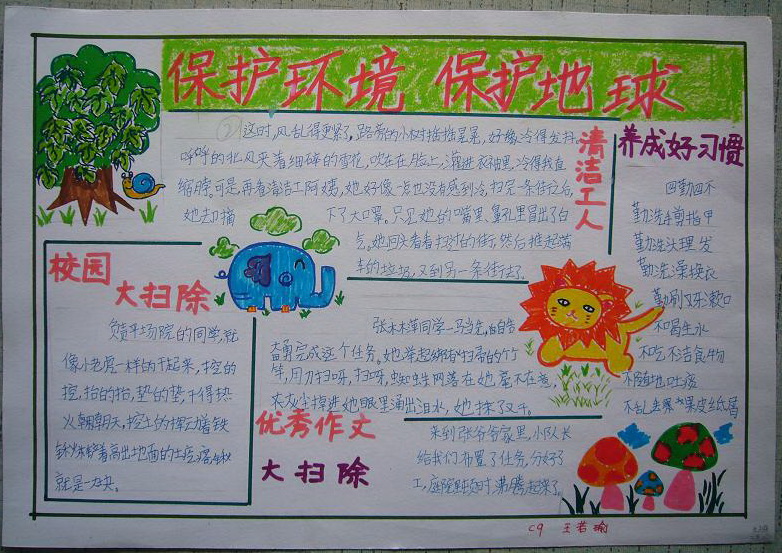 保护环境 保护地球
清洁工人
这时,风乱得更紧了,路旁的小树摇摇晃晃,好像冷得发抖
呼呼的北风夹着细碎的雪花,吹在在脸上,灌进衣袖里,冷得我直
缩脖。可是,再看清洁工阿姨,她好像一点也没有感到冷,扫完一条街后,
她去却摘 下了大口罩。只见她的嘴里、鼻孔里冒出了白
气。她回头看看扫过的街,然后推起满
车的垃圾,又到另一条街去了。
养成好习惯
四勤四不
勤洗手剪指甲
勤洗头理发
勤洗澡换衣
勤刷牙漱口
不喝生水
不吃不洁食物
不随地吐痰
不乱丢果皮纸屑
校园
大扫除
负责平场院的同学,就
像小老虎一样的干起来,挖的
挖,抬的抬,垫的垫,干得热
火朝朝天,挖土的挥动着铁
锹,瞅着高出地面的土疙瘩,锹
就是一块。
优秀作文
大扫除
张永木萍同学一马当先,自告
奋勇完成这个任务。她举起绑着扫帚的竹
竿,用力扫呀,扫呀,蜘蛛网落在她毫不在意,
灰尘掉进她眼里涌出泪水,她抹了又干。
来到张爷爷家里,小队长
给我们布置了任务,分好了
工,庭院里顿时沸腾起来了。
C9 王若瑜